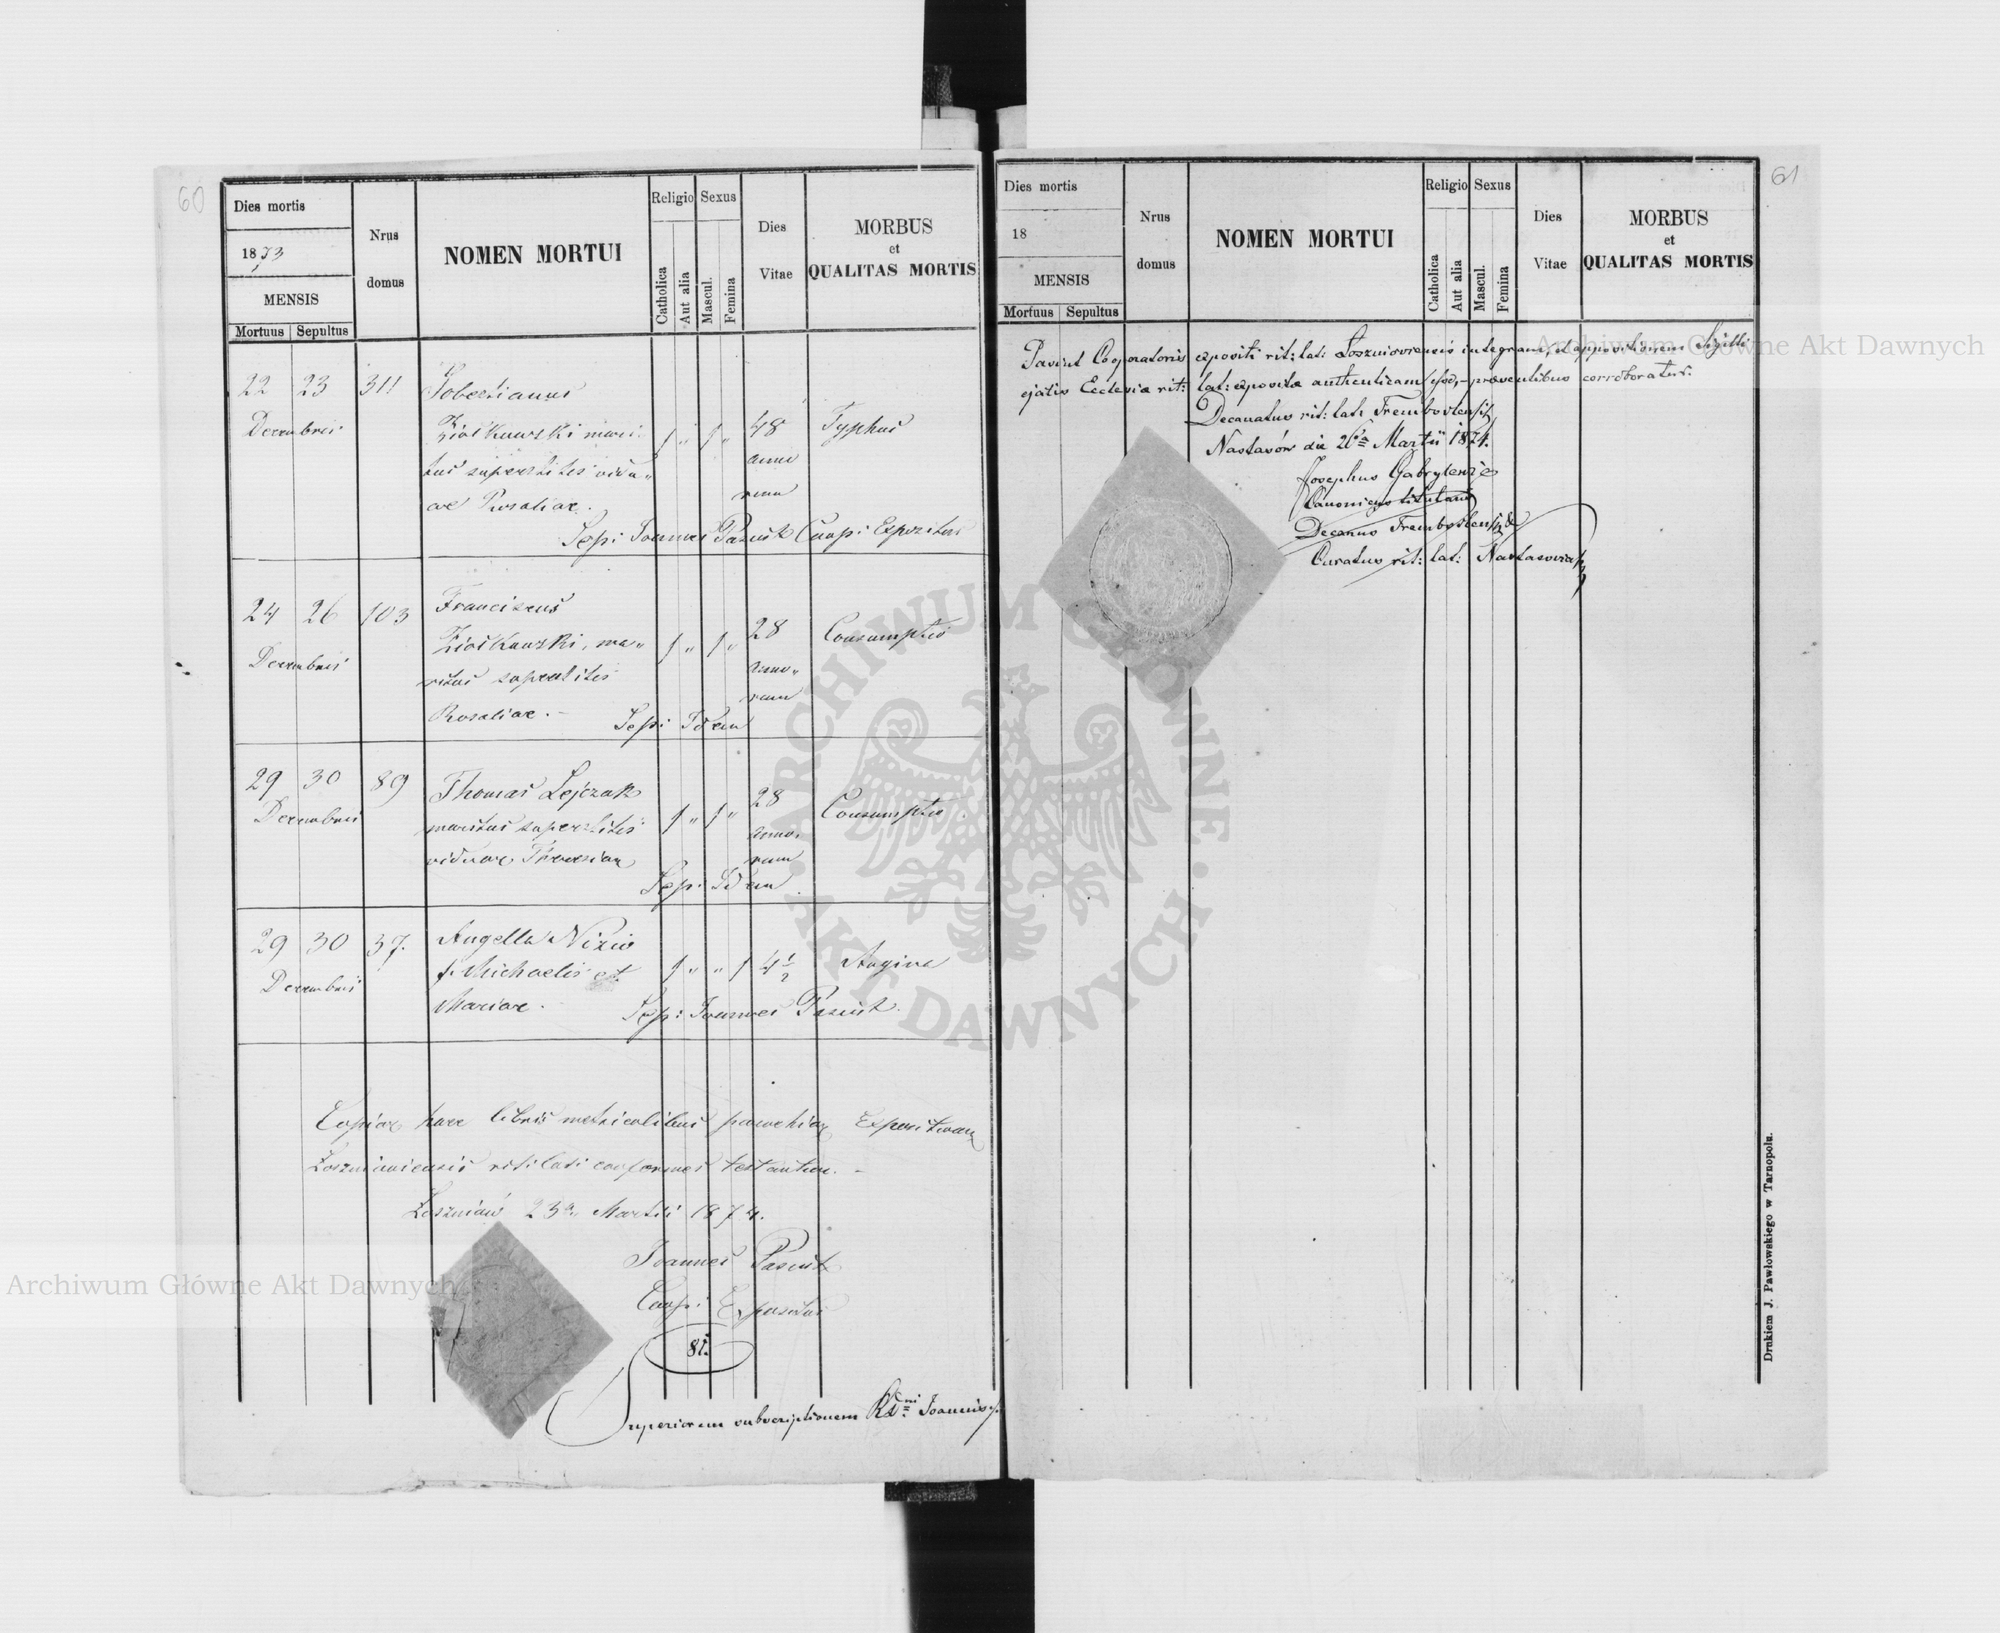 60
Dies mortis
1873
MENSIS
Mortuus Sepultus
Nrus
domus
NOMEN MORTUI
Religio
Catholica
Aut alia
Sexus
Mascul.
Femina
Dies
Vitae
MORBUS
et
QUALITAS MORTIS
22 23 311
Decembris
Ziółkowski mari-
tus superstitis vidu„
ae Rosaliae.
1 „ 1 „
48
anno
rum
Typhus
Sep: Joannes Coop: Expositus
24 26 103
Decembris
Franciscus
Ziółkowski, ma„
ritus superstitis
Rosaliae. -
1 „ 1 „
28
anno„
rum
Consumptio
Sep: Idem
29 30 89
Decembris
Thomas Lejczak
maritus superstitis
viduae Theresiae
1 „ 1 „
28
anno„
rum
Consumptio
Sep: Idem
29 30 37.
Decembris
Angella Nizio
f. Michaelis et
Mariae.
1 „ „ 1
4 1/2
Angina
Sep: Joannes
Copiae haec libris metricalibus parochiae
ritilati conformes testantur. -
Łoszniów 23a Martii 1874.
Joannes
Coop: Expositus
81.
Superiorem subscriptionem Rdni Joannis
61
Dies mortis
18
MENSIS
Mortuus Sepultus
Nrus
domus
NOMEN MORTUI
Religio
Catholica
Aut alia
Sexus
Mascul.
Femina
Dies
Vitae
MORBUS
et
QUALITAS MORTIS
Cooperatoris expositi rit: lat: Łoszniowiensis integram, et appositionem Sigilli
ejatis Ecclesia rit: lat: expositæ authenticam esse, præsentibus corroboratur.
Decanatus rit: lat:
Nastasów die 26ta Martii 1874.
Josephus Gabrylewicz
Canonicus titularis
Decanus
Curatus rit: lat:
Drukiem J. Pawłowskiego w Tarnopolu.
Archiwum Główne Akt Dawnych
Archiwum Główne Akt Dawnych
ARCHIWUM GŁÓWNE · AKT DAWNYCH ·